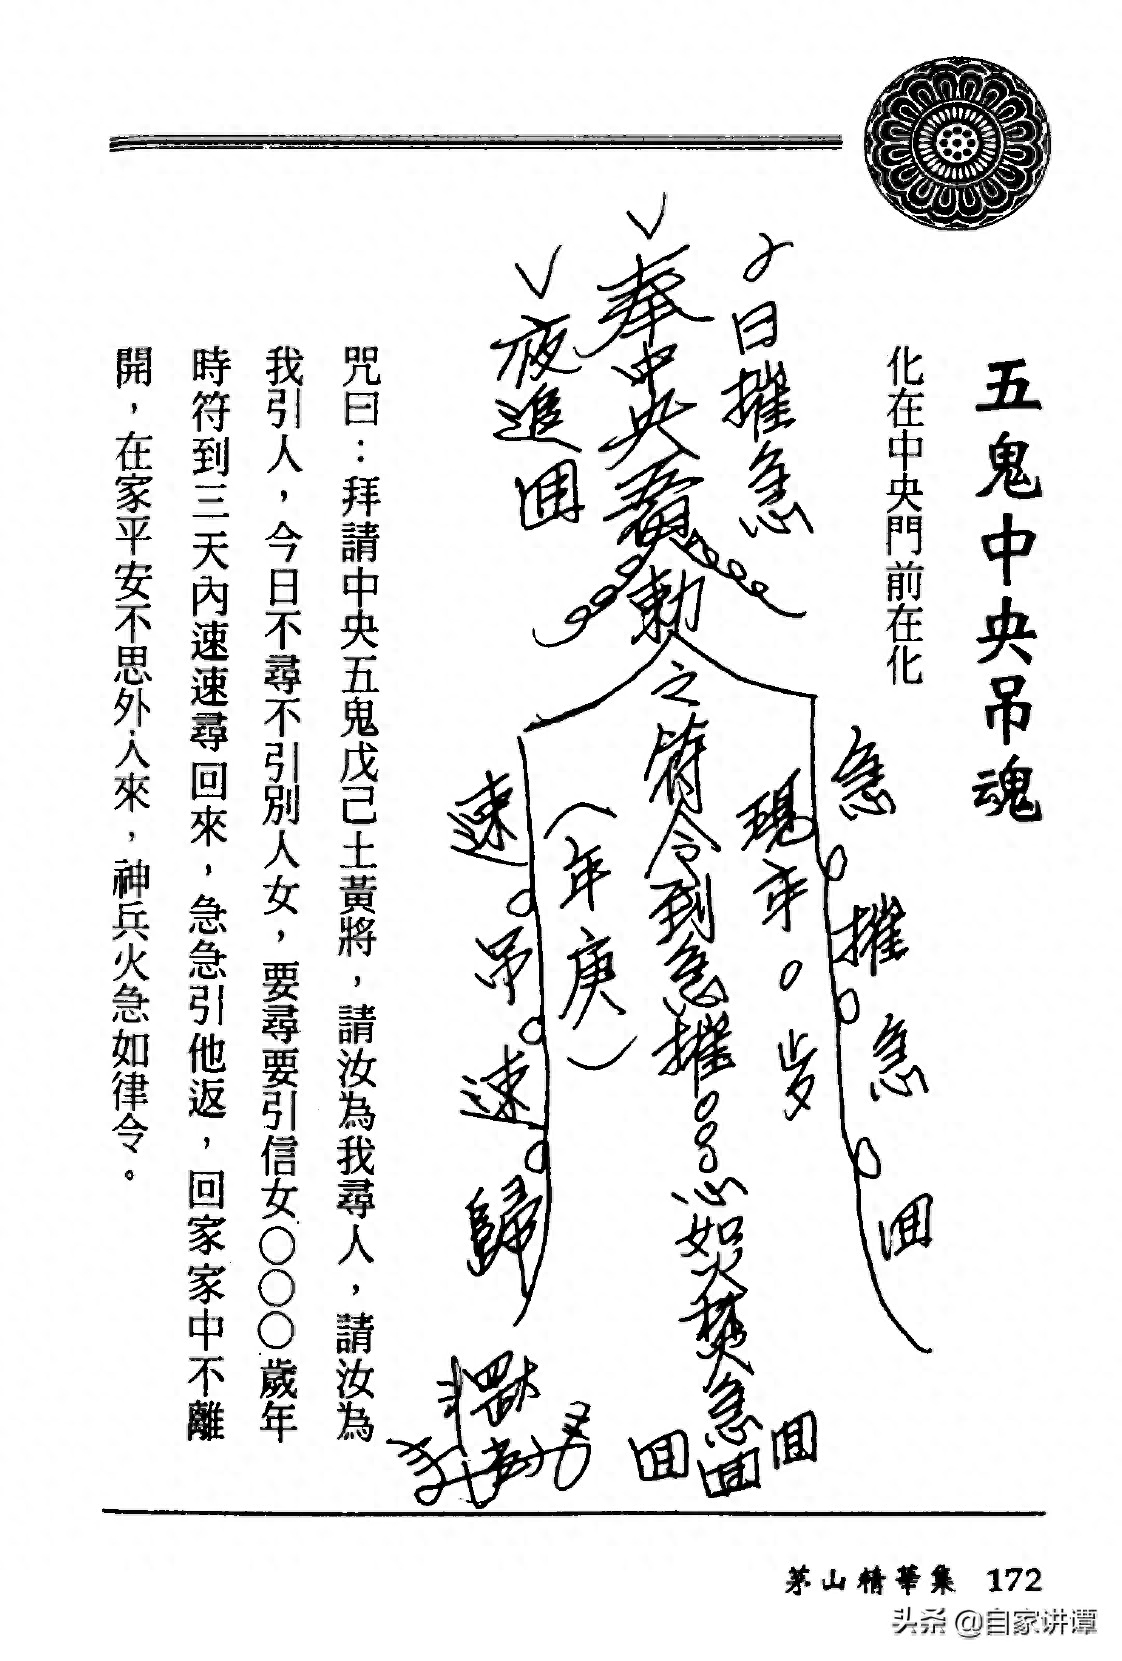 五鬼中央吊魂
化在中央門前在化
日摧急
奉中央黃勅之符令到急摧
心如火焚急回回回
夜進回
急摧急回
現年
歲
(年庚)
速吊速歸
咒曰：拜請中央五鬼戊己土黃將，請汝為我尋人，請汝為
我引人，今日不尋不引別人女，要尋要引信女○○○歲年
時符到三天內速速尋回來，急急引他返，回家家中不離
開，在家平安不思外人來，神兵火急如律令。
茅山精華集 172
头条 @自家讲谭